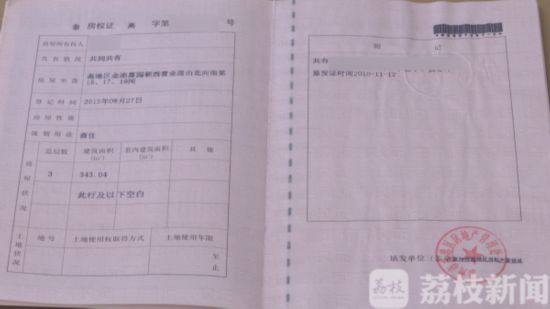 泰 房权证 高 字第 号
房屋所有权人
共有情况 共同共有
房屋坐落
15、17、19间
登记时间 2015年08月27日
房屋性质
规划用途 商住
房屋状况
总层数 建筑面积 (m²) 套内建筑面积 (m²) 其他
3 343.04
此行及以下空白
土地状况
地号 土地使用权取得方式 土地使用年限
至
止
附 记
共有
原发证时间2010-11-12
填发单位
荔枝
荔枝新闻